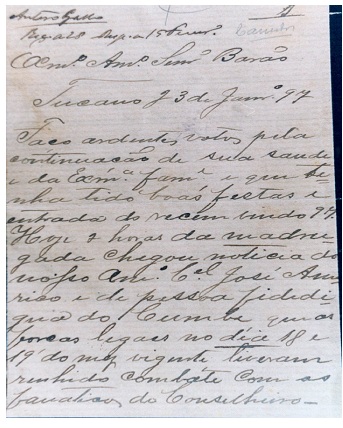 Antero Gallo
Rec. a 28 Resp. a 15 Fever.º
Exmº. Amº. Senr. Barão
Tucano 23 de Janrº. 97
Faço ardentes votos pela
continuação de sua saude
e da Exmª. famª. e que te-
nha tido boas festas e
entrada do recem vindo 97.
Hoje 2 horas da madru-
gada chegou noticia do
nosso amº. Cel. José Ame-
rico e de pessoa fidedi-
gna do Cumbe que as
forças legaes no dia 18 e
19 do mez vigente tiveram
renhido combate com os
fanaticos do Conselheiro—